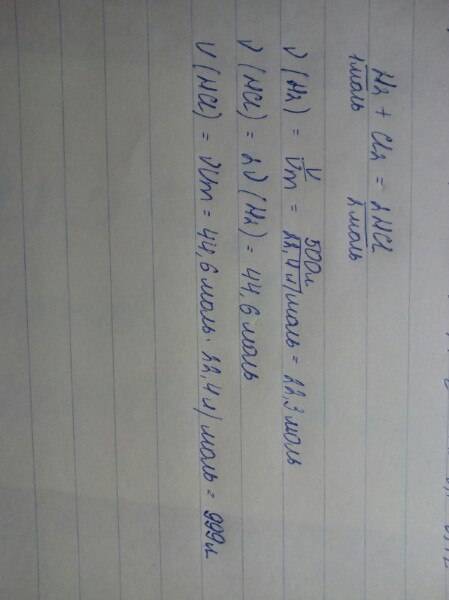 H2 + Cl2 = 2HCl
1моль 2моль
ν(H2) = V/Vm = 500л/22,4л/моль = 22,3моль
ν(HCl) = 2ν(H2) = 44,6моль
V(HCl) = νVm = 44,6моль · 22,4л/моль = 999л